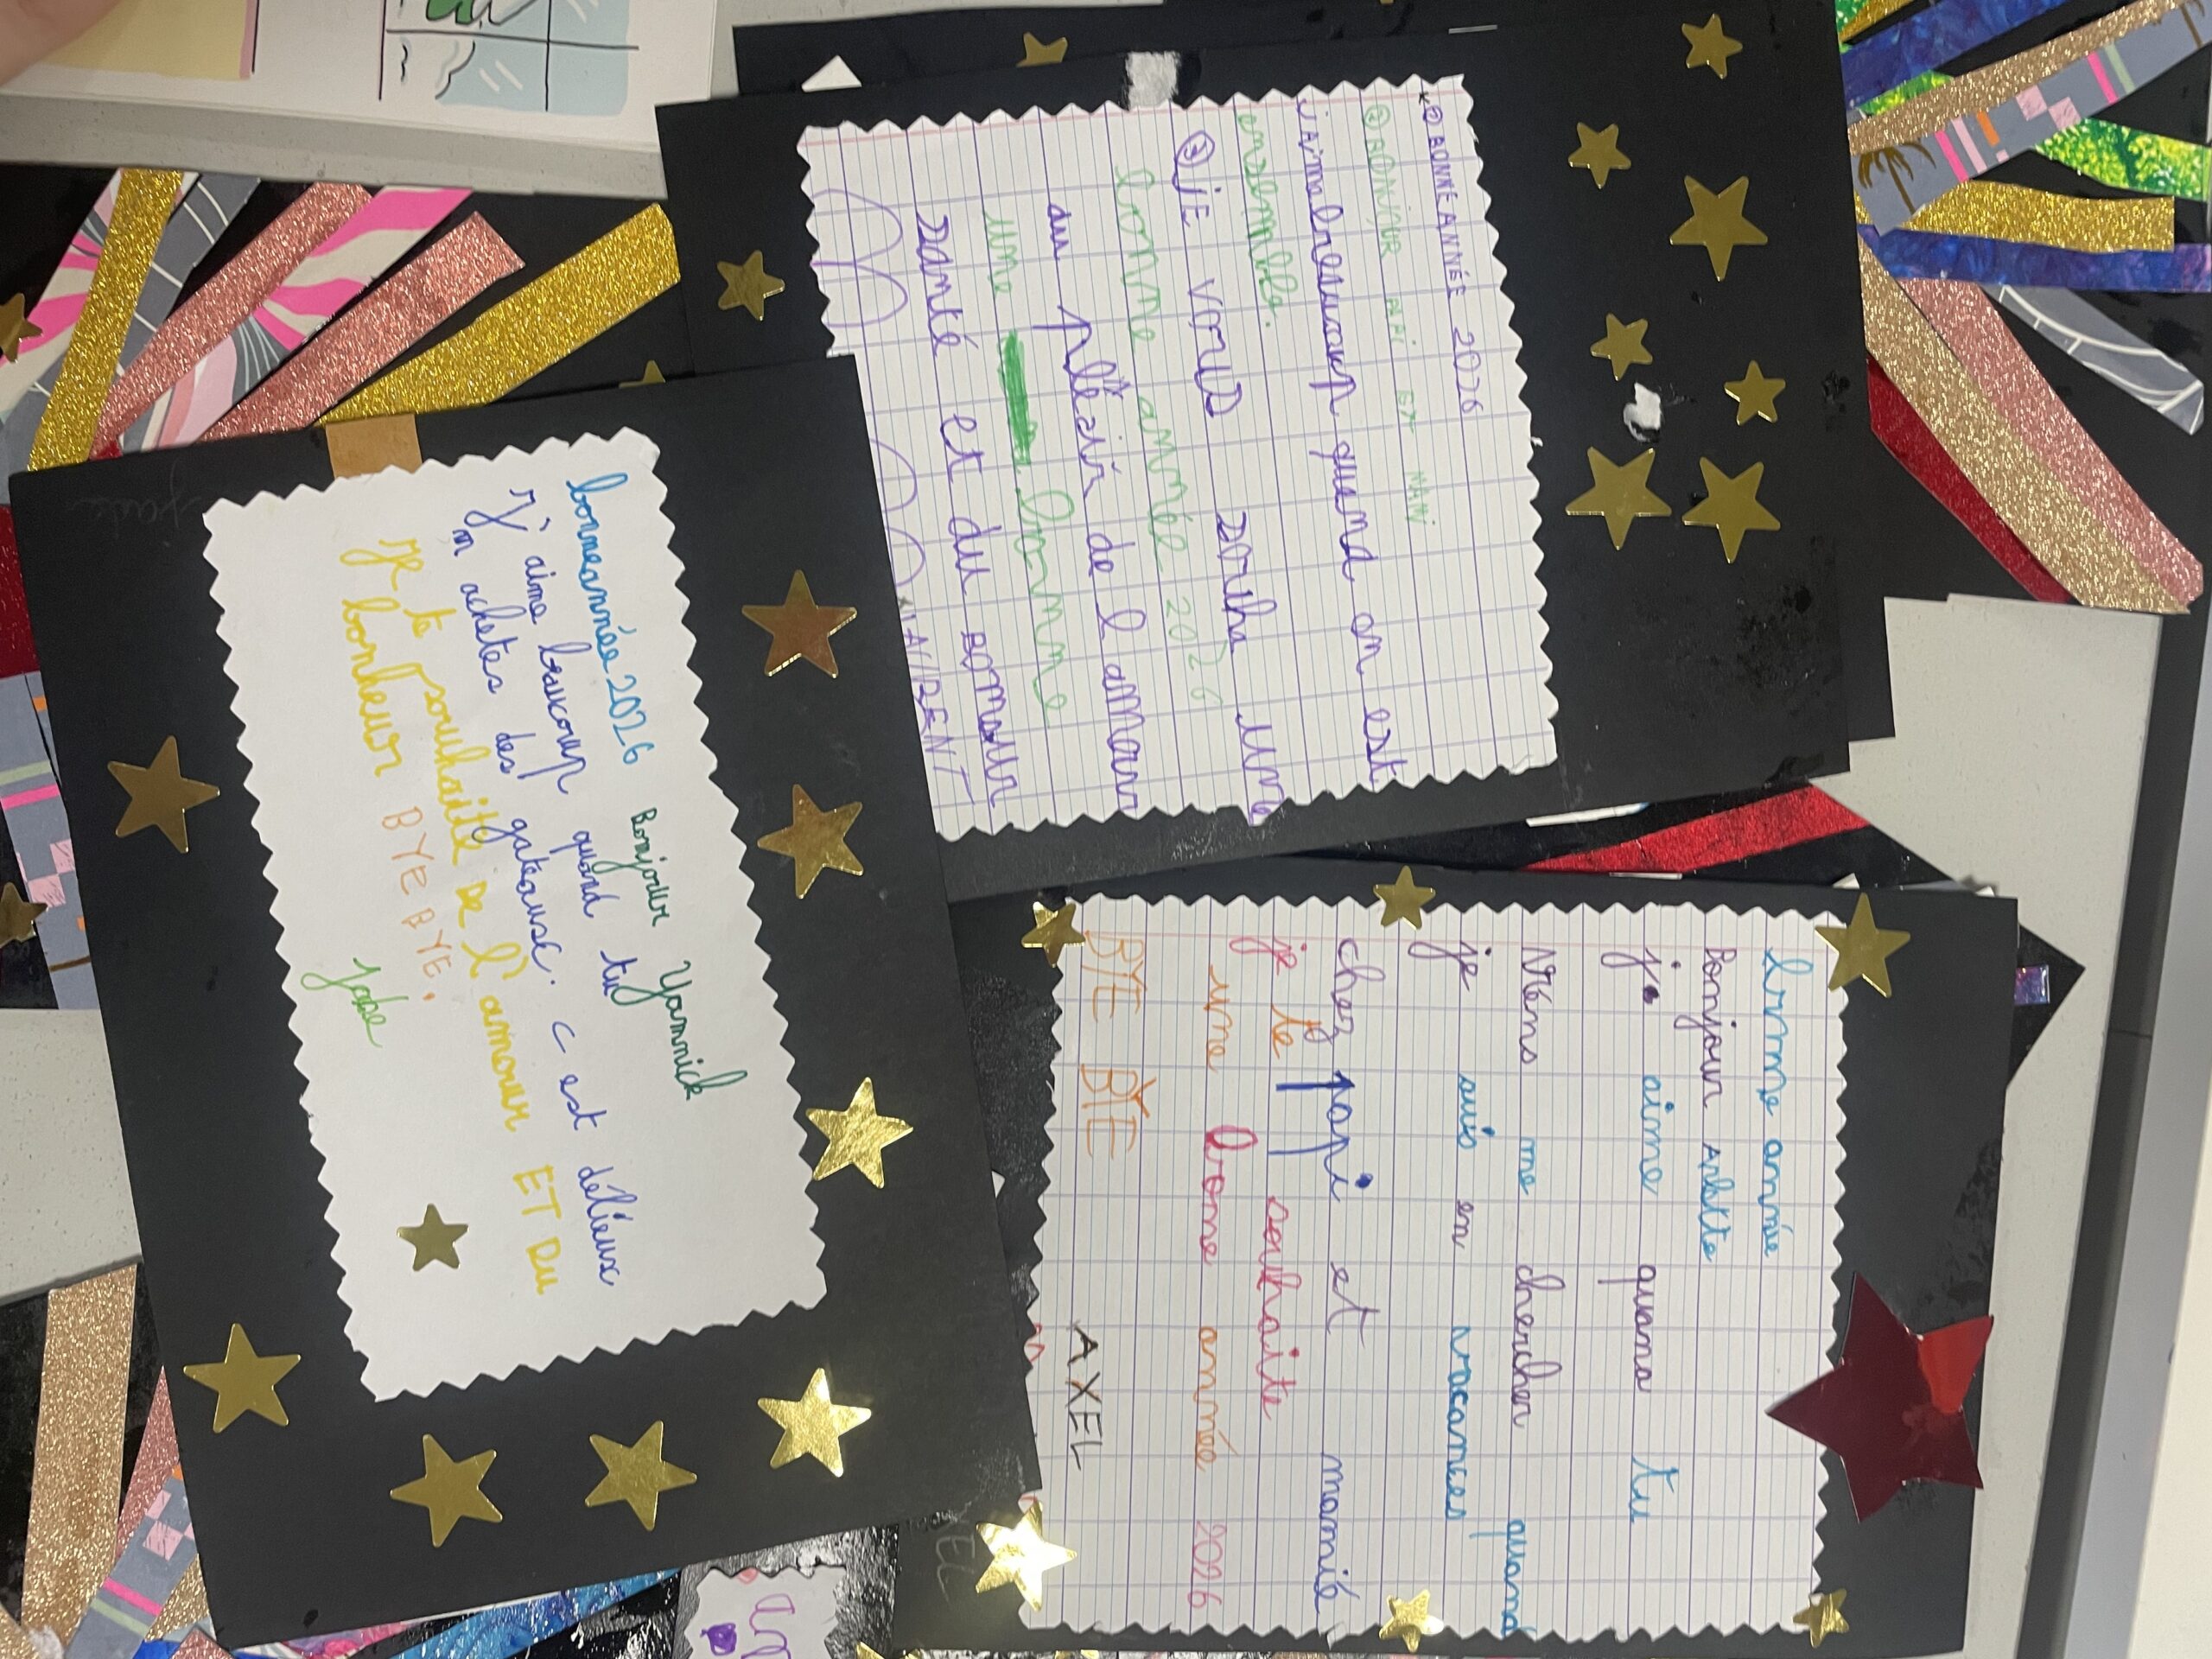 BONNE ANNÉE 2026
BONJOUR PAPI ET MAMI
j'aime beaucoup quand on est
ensemble.
JE VOUS souhe une
bonne année 2026
du plésir de l amour
une bonne
santé et du bomour
bonneannée 2026 Bonjour Yannick
J'aime beaucoup quand tu
m achetes des gateause. c est délieux
je te souhaite DE l'amour ET DU
bonheur BYE BYE.
bonne année
Bonjour Arlette
j' aime quand tu
viens me chercher quand
je suis en vacances
chez papi et mamié
je te souhaite
une bonne année 2026
BYE BYE
AXEL